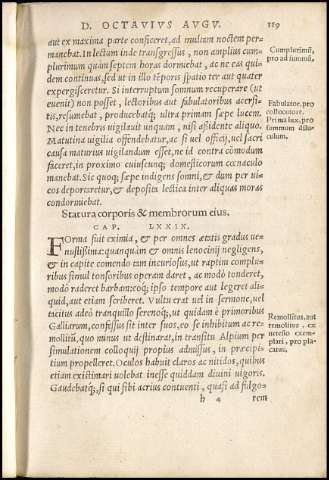 D. OCTAVIVS AVGV. 119
aut ex maxima parte conficeret, ad multum noctem per-
manebat. In lectum inde transgressus, non amplius cum-
plurimum quàm septem horas dormiebat, ac ne eas qui-
dem continuas, sed ut in illo tēporis spatio ter aut quater
expergisceretur. Si interruptum somnum recuperare (ut
euenit) non posset, lectoribus aut fabulatoribus accersi-
tis, resumebat, producebatq; ultra primam sæpe lucem.
Nec in tenebris uigilauit unquam, nisi assidente aliquo.
Matutina uigilia offendebatur, ac si uel officij, uel sacri
causa maturius uigilandum esset, ne id contra cōmodum
faceret, in proximo cuiuscunq; domesticorum cœnaculo
manebat. Sic quoq; sæpe indigens somni, & dum per ui-
cos deportaretur, & deposita lectica inter aliquas moras
condormiebat.
Statura corporis & membrorum eius.
CAP. LXXIX.
FOrma fuit eximia, & per omnes ætatis gradus ue-
nustissima: quanquàm & omnis lenocinij negligens,
& in capite comendo tam incuriosus, ut raptim compluri-
ribus simul tonsoribus operam daret, ac modò tonderet,
modò raderet barbam: eoq; ipso tempore aut legeret ali-
quid, aut etiam scriberet. Vultu erat uel in sermone, uel
tacitus adeò tranquillo serenoq;, ut quidam è primoribus
Galliarum, confessus sit inter suos, eo se inhibitum ac re-
mollitū, quo minus ut destinarat, in transitu Alpium per
simulationem colloquij propius admissus, in præcipi-
tium propelleret. Oculos habuit claros ac nitidos, quibus
etiam existimari uolebat inesse quiddam diuini uigoris.
Gaudebatq;, si qui sibi acrius contuenti, quasi ad fulgo-
h 4 rem
Cumplurimū,
pro ad summū,
Fabulator, pro
collocutore.
Prima lux, pro
summum dilu-
culum.
Remollitus, aut
remolitus, ex
uetusto exem-
plari, pro pla-
catus,